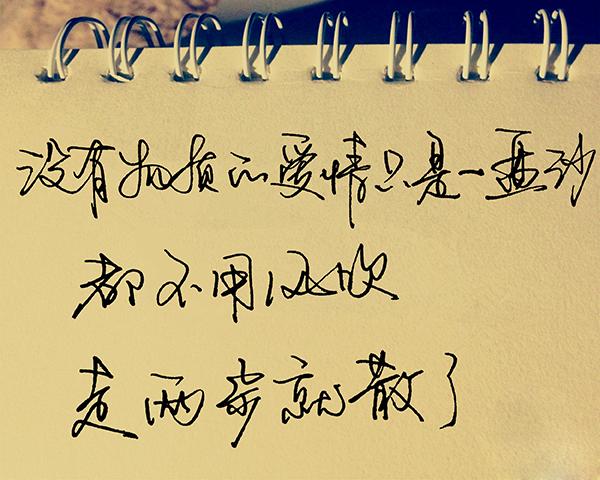 没有物质的爱情只是一盘沙
都不用风吹
走两步就散了